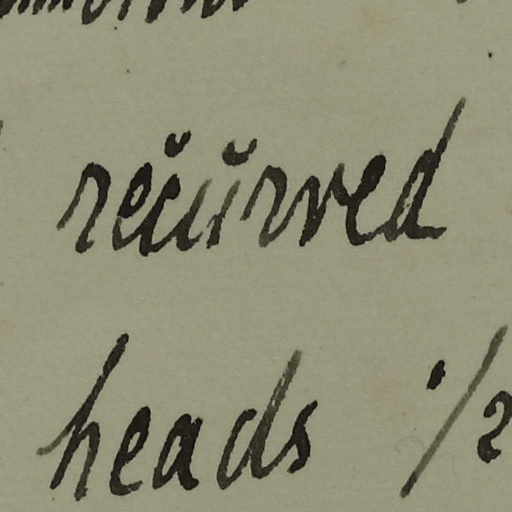 recŭrved
heads 1/2